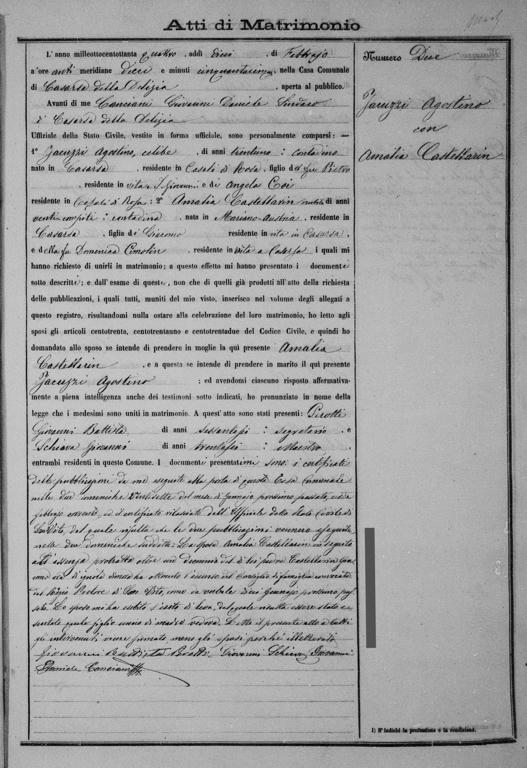 Atti di Matrimonio
Numero Due
Jacuzzi Agostino
con
Amalia Castellarin
L'anno milleottocentottanta quattro, addì dieci di Febbrajo
a'ore anti meridiane dieci e minuti cinquantacinque, nella Casa Comunale
di Casarsa della Delizia aperta al pubblico.
Avanti di me Canciani Giovanni Daniele Sindaco
di Casarsa della Delizia
Uffiziale della Stato Civile, vestito in forma ufficiale, sono personalmente comparsi: —
1° Jacuzzi Agostino, celibe, di anni trentuno: contadino
nato in Casarsa, residente in Casali di Rosa, figlio di fu Pietro
residente in vita a S. Giovanni e di Angela Coi
residente in Casali di Rosa: 2° Amalia Castellarin nubile di anni
venti compiti: contadina nata in Mariano-Austria, residente in
Casarsa, figlia di residente in vita in Casarsa,
e della fu Domenica residente in vita a Casarsa i quali mi
hanno richiesto di unirli in matrimonio; a questo effetto mi hanno presentato i documenti
sotto descritti; e dall'esame di questi, non che di quelli già prodotti all'atto della richiesta
delle pubblicazioni, i quali tutti, muniti del mio visto, inserisco nel volume degli allegati a
questo registro, risultandomi nulla ostare alla celebrazione del loro matrimonio, ho letto agli
sposi gli articoli centotrenta, centotrentauno e centotrentadue del Codice Civile, e quindi ho
domandato allo sposo se intende di prendere in moglie la quì presente Amalia
Castellarin, e a questa se intende di prendere in marito il quì presente
Jacuzzi Agostino; ed avendomi ciascuno risposto affermativa-
mente a piena intelligenza anche dei testimoni sotto indicati, ho pronunziato in nome della
legge che i medesimi sono uniti in matrimonio. A quest'atto sono stati presenti: Pirotti
Giovanni Battista di anni sessantasei: Segretario e
Schiava Giovanni di anni trentasei: Maestro
entrambi residenti in questo Comune. I documenti presentati mi sono: i certificati
delle pubblicazioni da me eseguite alla porta di questa Casa Comunale
nelle due domeniche del mese di Gennajo prossimo passato, e
febbrajo corrente, ed il certificato rilasciato dall'Uffiziale dello Stato Civile di
San Vito, dal quale risulta che le due pubblicazioni vennero eseguite
nelle due domeniche suddette. La sposa Amalia Castellarin in seguito
all'assenza protratta oltre un decennio del di lei padre Castellarin
di ignota dimora ha ottenuto l'assenso del Consiglio di famiglia convocato
dal Signor Pretore di San Vito, come da verbale dieci Gennajo prossimo pas-
sato. Lo sposo mi ha esibito l'esito di leva, dal quale risulta essere stato e-
sentato quale figlio unico di madre vedova. Letto il presente atto a tutti
gli intervenuti viene firmato meno gli sposi perchè illetterati
Giovanni Battista Pirotti. Giovanni Schiava Giovanni
Daniele Canciani
1) S' indichi la professione o la condizione.